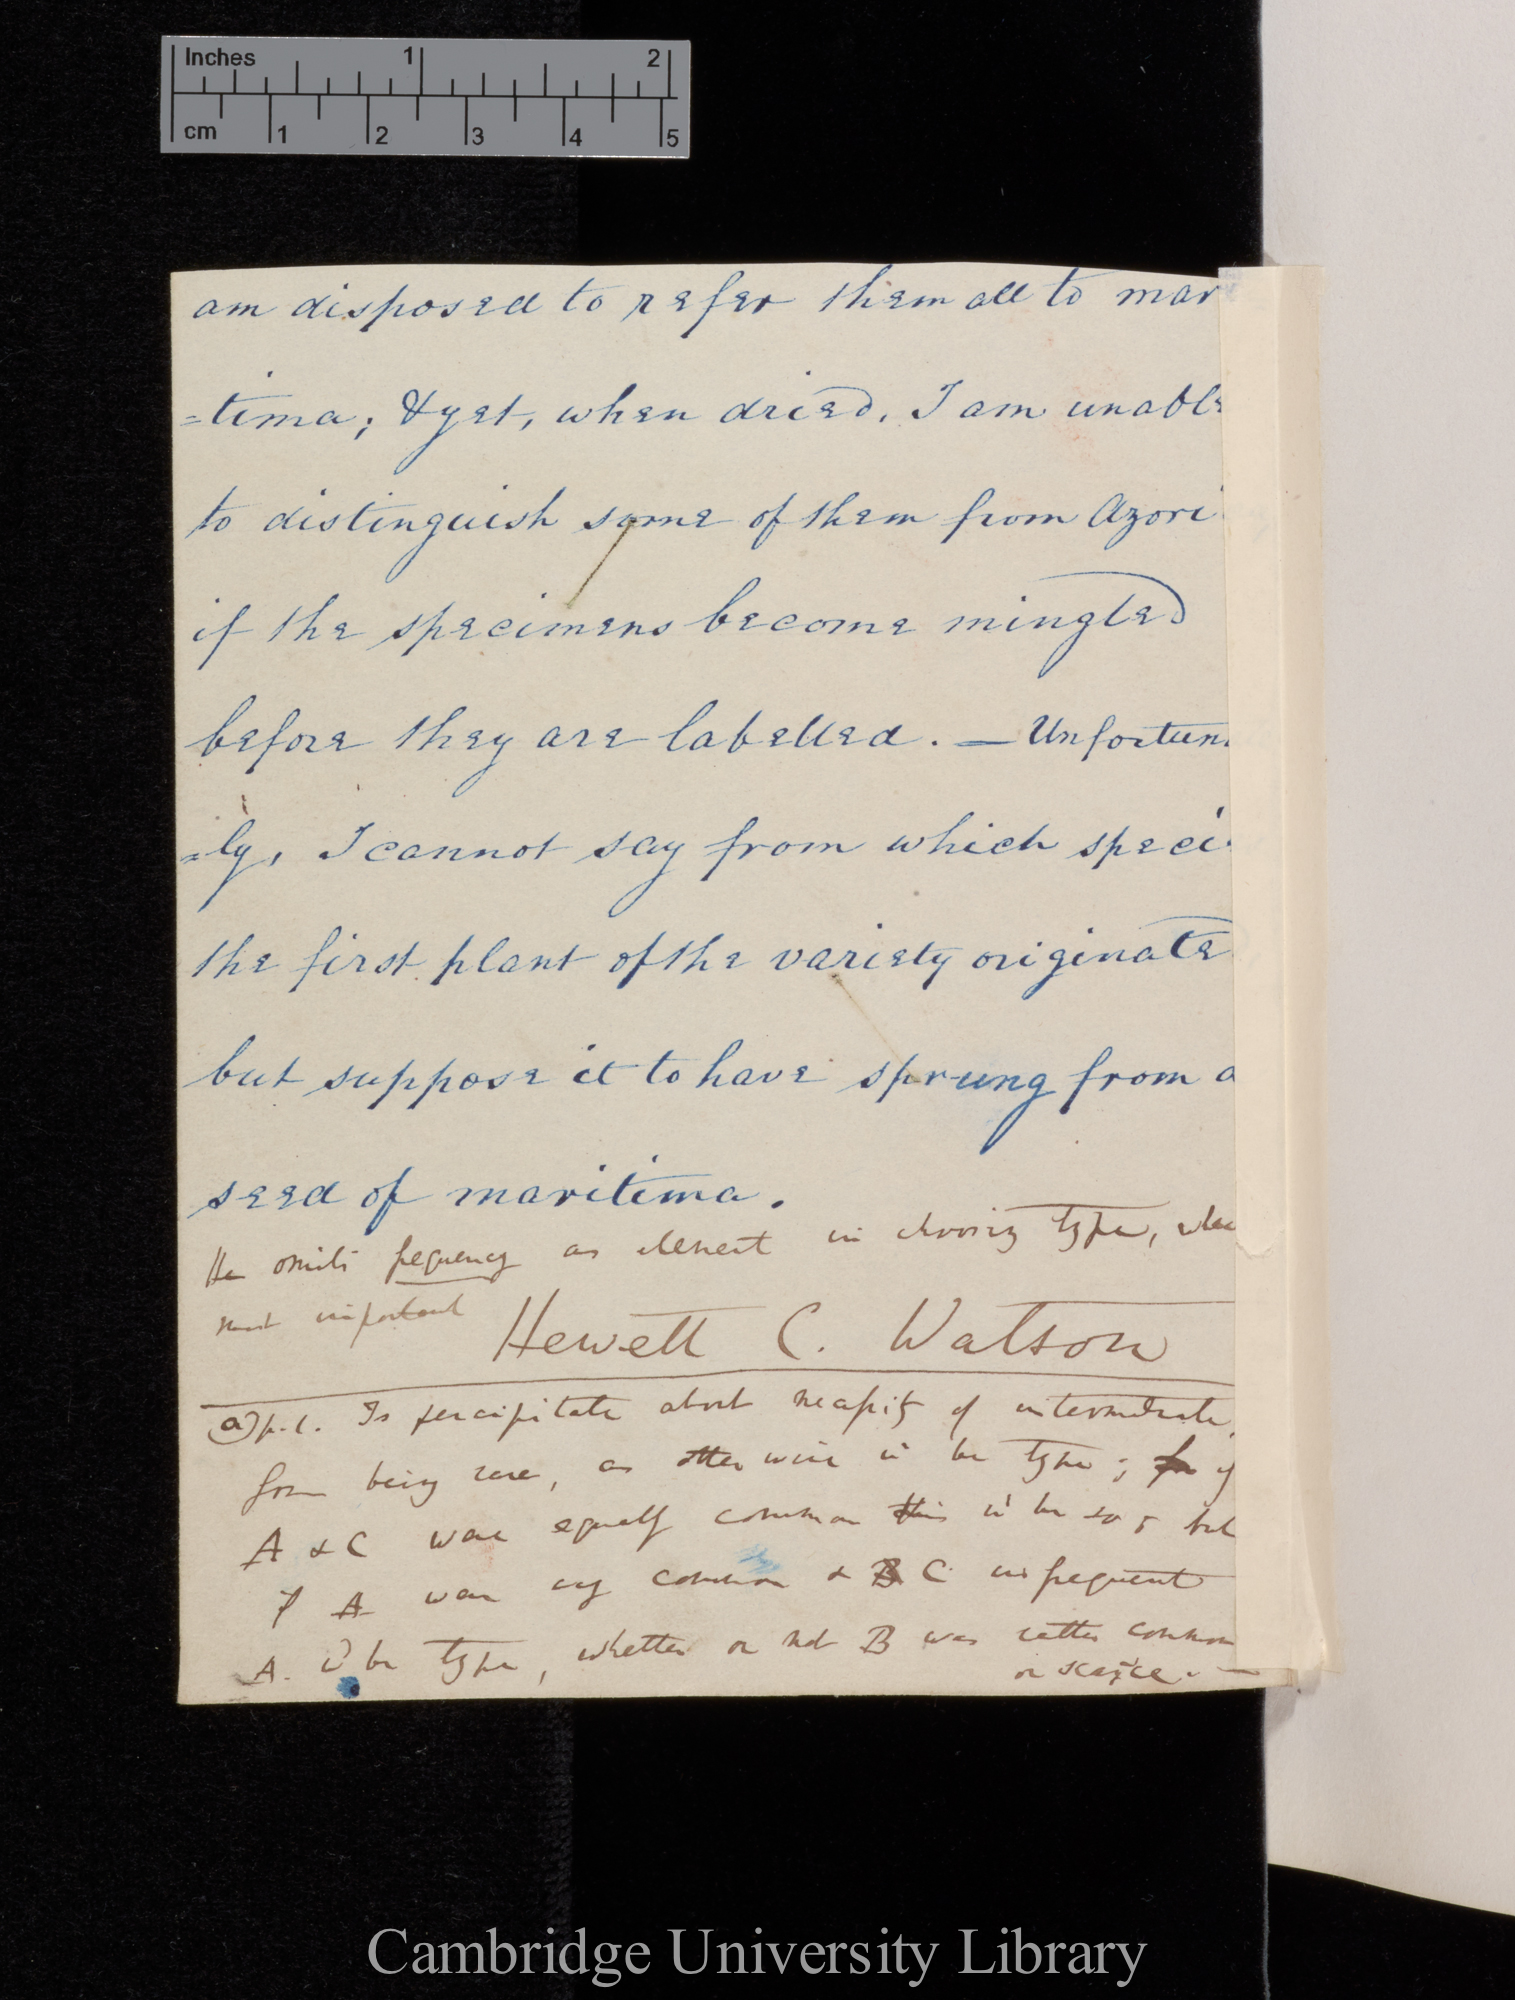 Inches 1 2
cm 1 2 3 4 5
am disposed to refer them all to mar
=tima; & yet, when dried, I am unabl
to distinguish some of them from Azori
if the specimens become mingled
before they are labelled. — Unfortun
=ly, I cannot say from which speci
the first plant of the variety originate
but suppose it to have sprung from a
seed of maritima.
He omits frequency as element in choosing type,
most important
Hewett C. Watson
(a) Is percipitate about necessity of intermediate
form being rare, as otherwise it wd be type; for if
A & C were equally common this wd be so; but
if A were very common & B C infrequent
A. wd be type, whether or not B was rather common
or scarce. —
Cambridge University Library